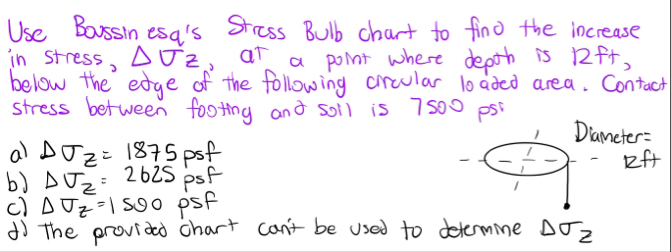 Use Boussinesq's Stress Bulb chart to find the increase
in stress, Δσz, at a point where depth is 12ft,
below the edge of the following circular loaded area. Contact
stress between footing and soil is 7500 psi
a) Δσz = 1875 psf
b) Δσz = 2625 psf
c) Δσz = 1500 psf
d) The provided chart can't be used to determine Δσz
Diameter=
12ft